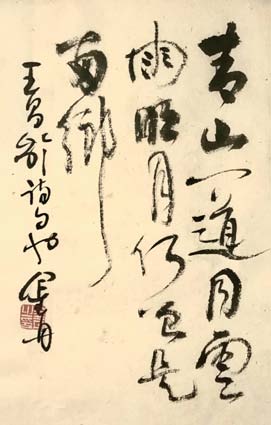 青山一道同雲
雨明月何曾是
兩鄉
王昌齡詩句